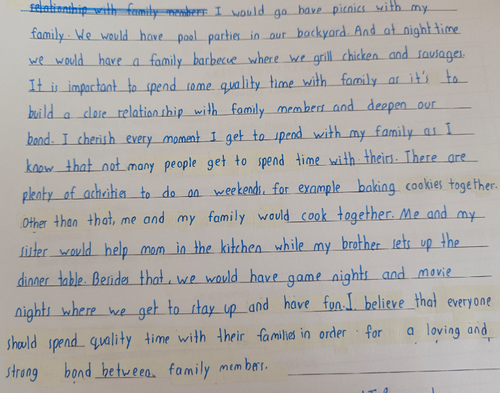 relationship with family members I would go have picnics with my
family. We would have pool parties in our backyard. And at night time
we would have a family barbecue where we grill chicken and sausages.
It is important to spend some quality time with family as it's to
build a close relationship with family members and deepen our
bond. I cherish every moment I get to spend with my family as I
know that not many people get to spend time with theirs. There are
plenty of activities to do on weekends, for example baking cookies together.
Other than that, me and my family would cook together. Me and my
sister would help mom in the kitchen while my brother sets up the
dinner table. Besides that, we would have game nights and movie
nights where we get to stay up and have fun. I believe that everyone
should spend quality time with their families in order for a loving and
strong bond between family members.